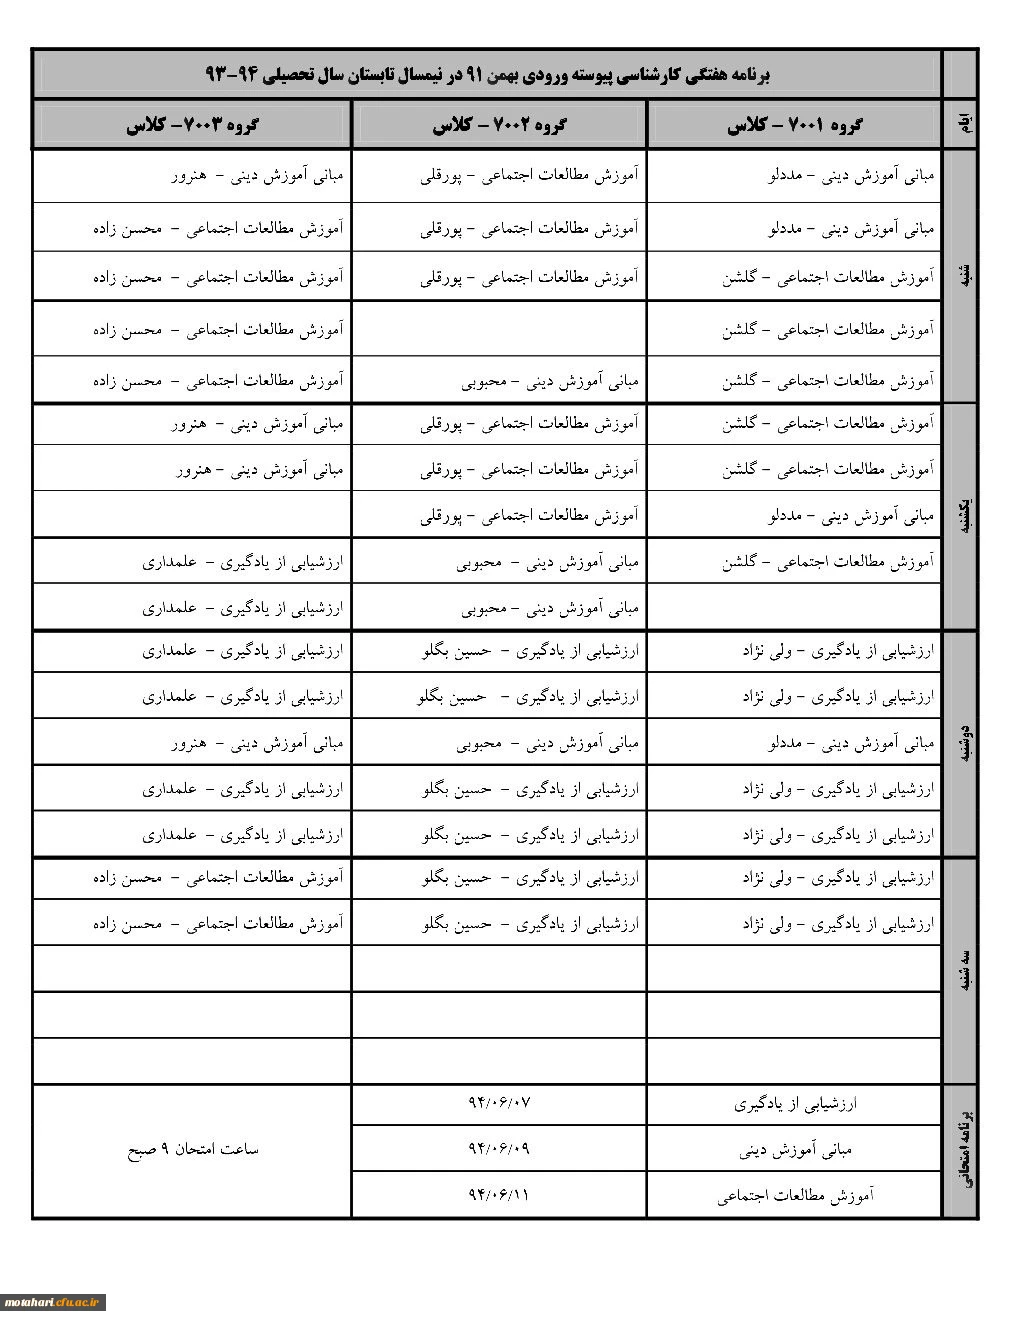 برنامه هفتگی کارشناسی پیوسته ورودی بهمن ۹۱ در نیمسال تابستان سال تحصیلی ۹۴-۹۳
ایام گروه ۷۰۰۱ - کلاس گروه ۷۰۰۲ - کلاس گروه ۷۰۰۳ - کلاس
شنبه
مبانی آموزش دینی - مددلو آموزش مطالعات اجتماعی - پورقلی مبانی آموزش دینی - هنرور
مبانی آموزش دینی - مددلو آموزش مطالعات اجتماعی - پورقلی آموزش مطالعات اجتماعی - محسن زاده
آموزش مطالعات اجتماعی - گلشن آموزش مطالعات اجتماعی - پورقلی آموزش مطالعات اجتماعی - محسن زاده
آموزش مطالعات اجتماعی - گلشن آموزش مطالعات اجتماعی - محسن زاده
آموزش مطالعات اجتماعی - گلشن مبانی آموزش دینی - محبوبی آموزش مطالعات اجتماعی - محسن زاده
یکشنبه
آموزش مطالعات اجتماعی - گلشن آموزش مطالعات اجتماعی - پورقلی مبانی آموزش دینی - هنرور
آموزش مطالعات اجتماعی - گلشن آموزش مطالعات اجتماعی - پورقلی مبانی آموزش دینی - هنرور
مبانی آموزش دینی - مددلو آموزش مطالعات اجتماعی - پورقلی
آموزش مطالعات اجتماعی - گلشن مبانی آموزش دینی - محبوبی ارزشیابی از یادگیری - علمداری
مبانی آموزش دینی - محبوبی ارزشیابی از یادگیری - علمداری
دوشنبه
ارزشیابی از یادگیری - ولی نژاد ارزشیابی از یادگیری - حسین بگلو ارزشیابی از یادگیری - علمداری
ارزشیابی از یادگیری - ولی نژاد ارزشیابی از یادگیری - حسین بگلو ارزشیابی از یادگیری - علمداری
مبانی آموزش دینی - مددلو مبانی آموزش دینی - محبوبی مبانی آموزش دینی - هنرور
ارزشیابی از یادگیری - ولی نژاد ارزشیابی از یادگیری - حسین بگلو ارزشیابی از یادگیری - علمداری
ارزشیابی از یادگیری - ولی نژاد ارزشیابی از یادگیری - حسین بگلو ارزشیابی از یادگیری - علمداری
سه شنبه
ارزشیابی از یادگیری - ولی نژاد ارزشیابی از یادگیری - حسین بگلو آموزش مطالعات اجتماعی - محسن زاده
ارزشیابی از یادگیری - ولی نژاد ارزشیابی از یادگیری - حسین بگلو آموزش مطالعات اجتماعی - محسن زاده
برنامه امتحانی
ارزشیابی از یادگیری ۹۴/۰۶/۰۷
مبانی آموزش دینی ۹۴/۰۶/۰۹ ساعت امتحان ۹ صبح
آموزش مطالعات اجتماعی ۹۴/۰۶/۱۱
motahari.cfu.ac.ir